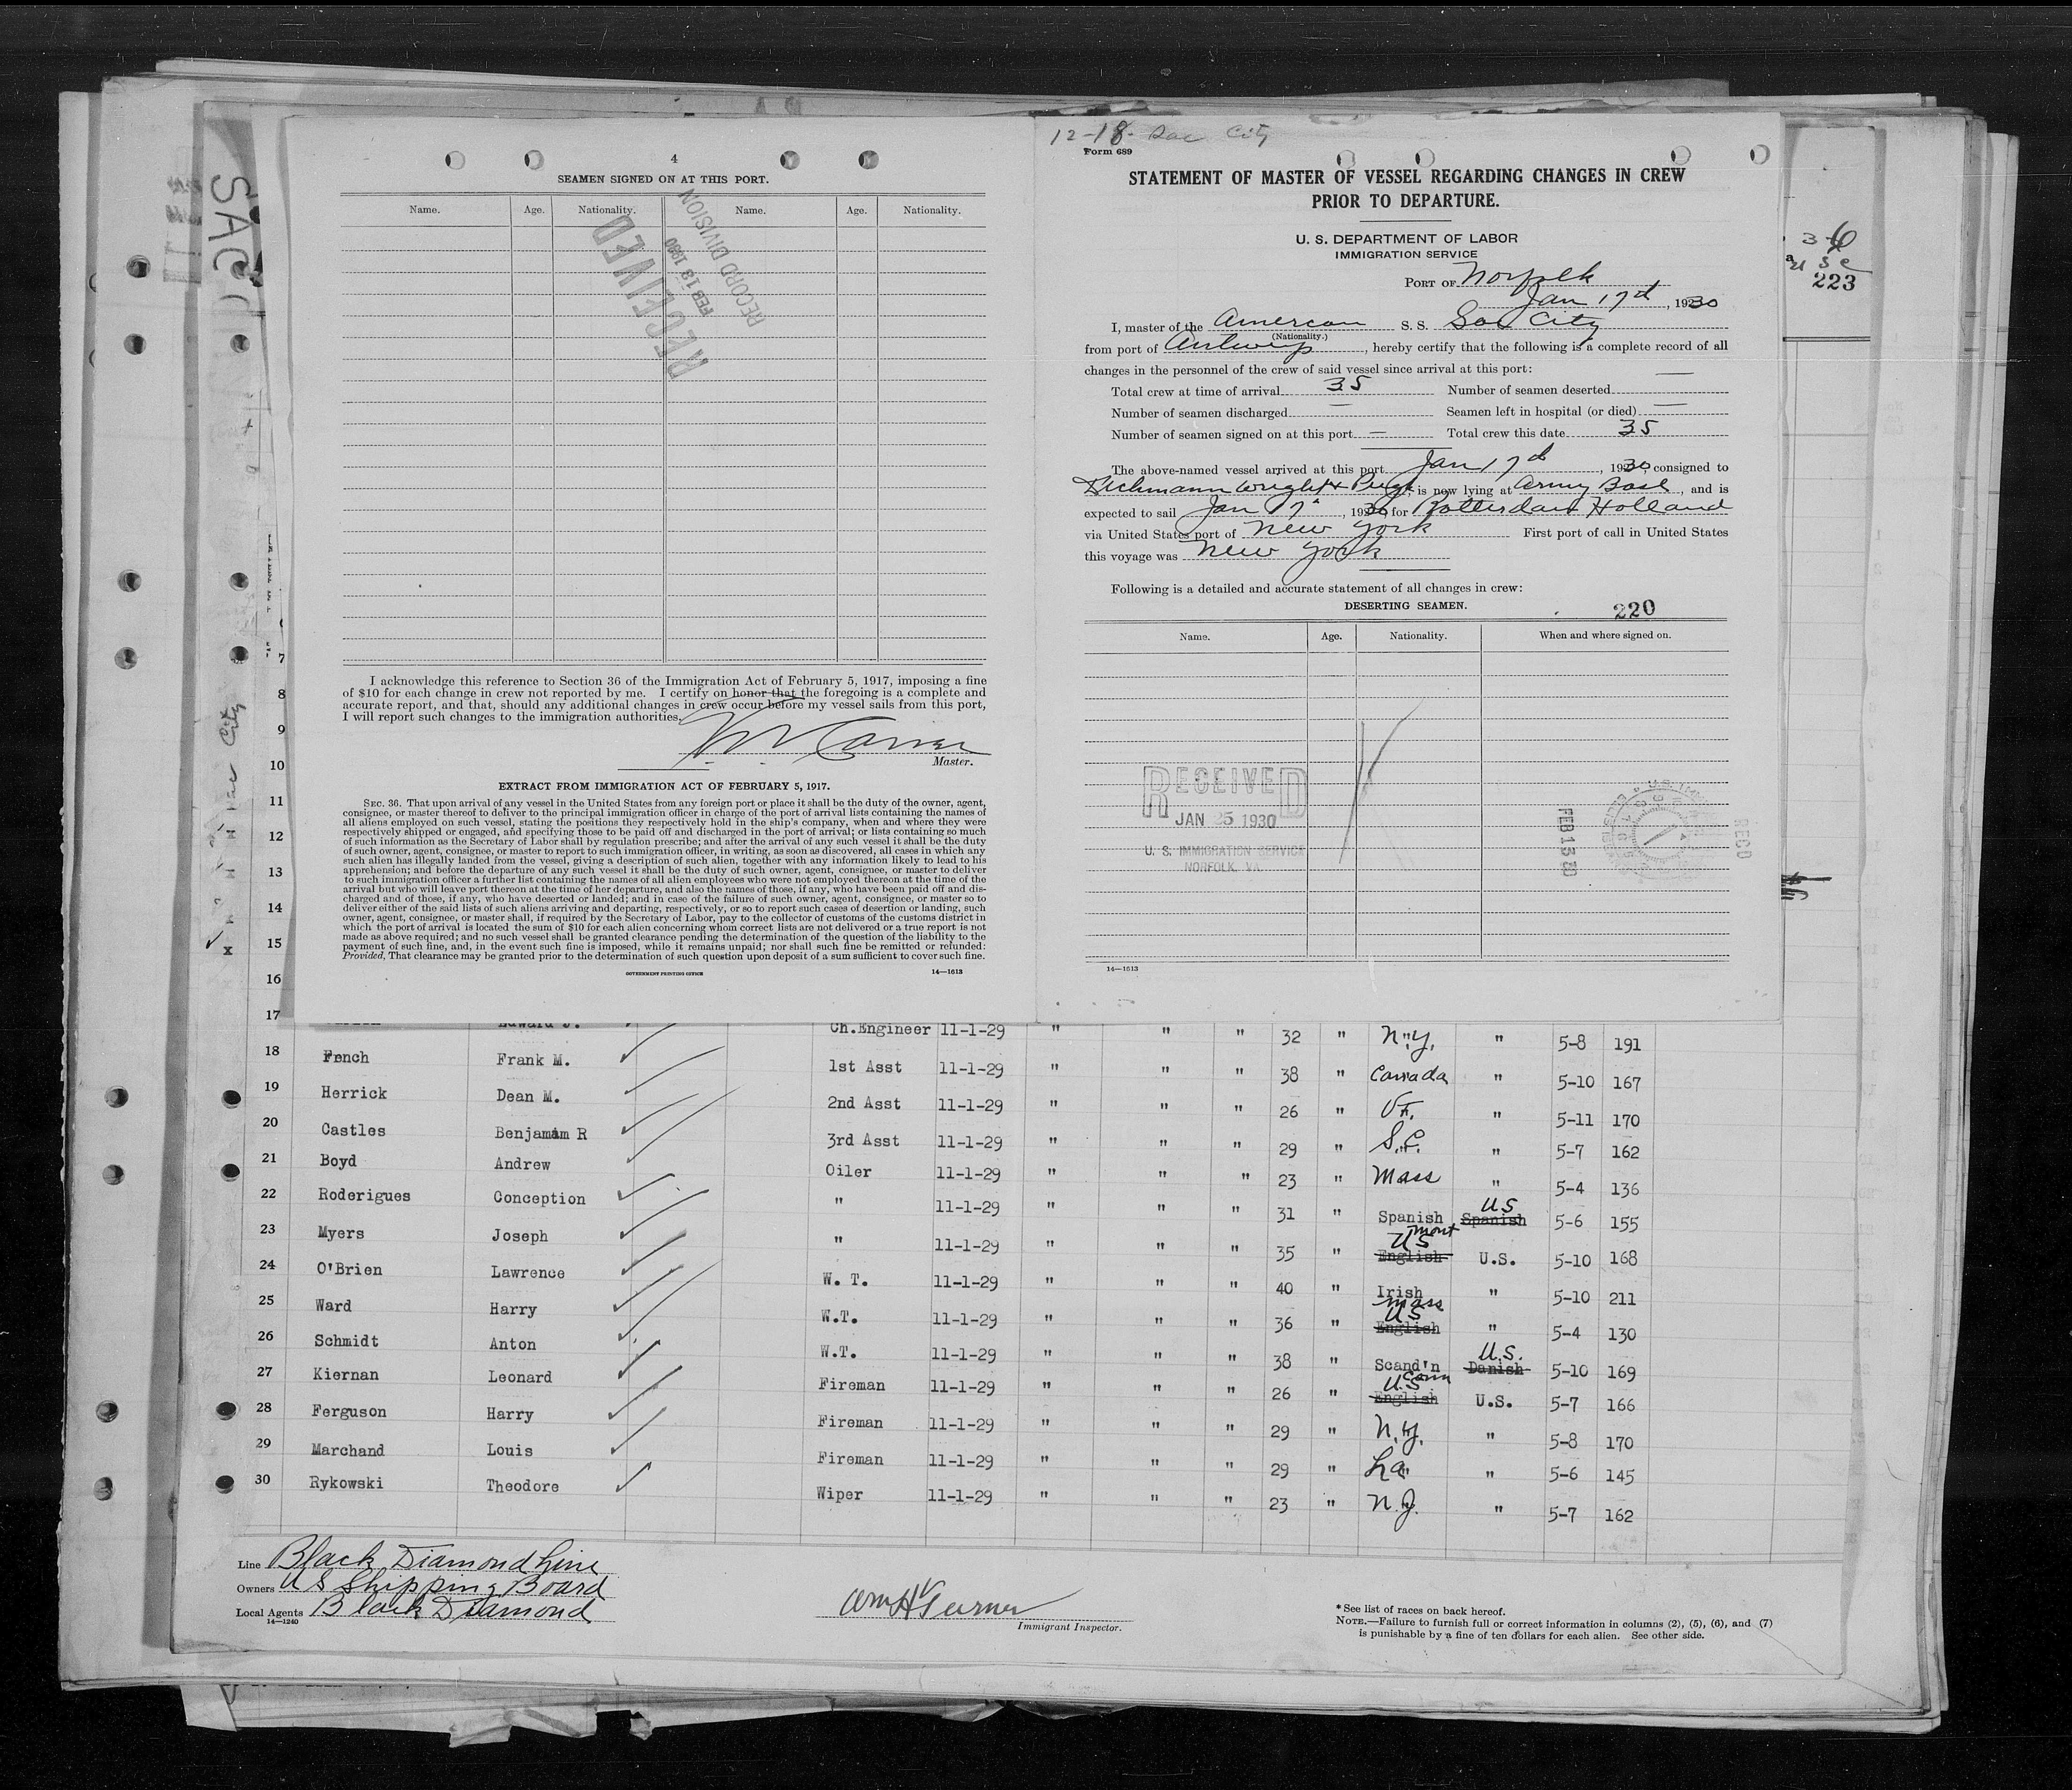 4
SEAMEN SIGNED ON AT THIS PORT.
Name. Age. Nationality. Name. Age. Nationality.
RECEIVED
FEB 13 1930
RECORD DIVISION
I acknowledge this reference to Section 36 of the Immigration Act of February 5, 1917, imposing a fine
of $10 for each change in crew not reported by me. I certify on honor that the foregoing is a complete and
accurate report, and that, should any additional changes in crew occur before my vessel sails from this port,
I will report such changes to the immigration authorities.
Master.
EXTRACT FROM IMMIGRATION ACT OF FEBRUARY 5, 1917.
SEC. 36. That upon arrival of any vessel in the United States from any foreign port or place it shall be the duty of the owner, agent,
consignee, or master thereof to deliver to the principal immigration officer in charge of the port of arrival lists containing the names of
all aliens employed on such vessel, stating the positions they respectively hold in the ship's company, when and where they were
respectively shipped or engaged, and specifying those to be paid off and discharged in the port of arrival; or lists containing so much
of such information as the Secretary of Labor shall by regulation prescribe; and after the arrival of any such vessel it shall be the duty
of such owner, agent, consignee, or master to report to such immigration officer, in writing, as soon as discovered, all cases in which any
such alien has illegally landed from the vessel, giving a description of such alien, together with any information likely to lead to his
apprehension; and before the departure of any such vessel it shall be the duty of such owner, agent, consignee, or master to deliver
to such immigration officer a further list containing the names of all alien employees who were not employed thereon at the time of the
arrival but who will leave port thereon at the time of her departure, and also the names of those, if any, who have been paid off and dis-
charged and of those, if any, who have deserted or landed; and in case of the failure of such owner, agent, consignee, or master so to
deliver either of the said lists of such aliens arriving and departing, respectively, or so to report such cases of desertion or landing, such
owner, agent, consignee, or master shall, if required by the Secretary of Labor, pay to the collector of customs of the customs district in
which the port of arrival is located the sum of $10 for each alien concerning whom correct lists are not delivered or a true report is not
made as above required; and no such vessel shall be granted clearance pending the determination of the question of the liability to the
payment of such fine, and, in the event such fine is imposed, while it remains unpaid; nor shall such fine be remitted or refunded:
Provided, That clearance may be granted prior to the determination of such question upon deposit of a sum sufficient to cover such fine.
GOVERNMENT PRINTING OFFICE 14—1613
12-18- Sac City
Form 689
STATEMENT OF MASTER OF VESSEL REGARDING CHANGES IN CREW
PRIOR TO DEPARTURE.
U. S. DEPARTMENT OF LABOR
IMMIGRATION SERVICE
PORT OF Norfolk
Jan 17d, 1930
I, master of the American S. S. Sac City
(Nationality.)
from port of Antwerp, hereby certify that the following is a complete record of all
changes in the personnel of the crew of said vessel since arrival at this port:
Total crew at time of arrival 35 Number of seamen deserted —
Number of seamen discharged — Seamen left in hospital (or died) —
Number of seamen signed on at this port — Total crew this date 35
The above-named vessel arrived at this port Jan 17d, 1930, consigned to
Dichmann Wright & Pugh, is now lying at Army Base, and is
expected to sail Jan 17, 1930, for Rotterdam Holland
via United States port of New York First port of call in United States
this voyage was New York
Following is a detailed and accurate statement of all changes in crew:
DESERTING SEAMEN. 220
Name. Age. Nationality. When and where signed on.
RECEIVED
JAN 25 1930
U. S. IMMIGRATION SERVICE
NORFOLK, VA.
FEB 13 30
REC'D
14—1613
SAC
Sac City
223
7
8
9
10
11
12
13
14
15
16
17 Edward J. Ch.Engineer 11-1-29 " " " 32 " N.Y. " 5-8 191
18 French Frank M. 1st Asst 11-1-29 " " " 38 " Canada " 5-10 167
19 Herrick Dean M. 2nd Asst 11-1-29 " " " 26 " Vt. " 5-11 170
20 Castles Benjamim R 3rd Asst 11-1-29 " " " 29 " S.C. " 5-7 162
21 Boyd Andrew Oiler 11-1-29 " " " 23 " Mass " 5-4 136
22 Roderigues Conception " 11-1-29 " " " 31 " Spanish Spanish US 5-6 155
23 Myers Joseph " 11-1-29 " " " 35 " English US Mont U.S. 5-10 168
24 O'Brien Lawrence W. T. 11-1-29 " " " 40 " Irish " 5-10 211
25 Ward Harry W.T. 11-1-29 " " " 36 " English US Mass " 5-4 130
26 Schmidt Anton W.T. 11-1-29 " " " 38 " Scand'n Danish U.S. 5-10 169
27 Kiernan Leonard Fireman 11-1-29 " " " 26 " English U.S. Conn U.S. 5-7 166
28 Ferguson Harry Fireman 11-1-29 " " " 29 " N.Y. " 5-8 170
29 Marchand Louis Fireman 11-1-29 " " " 29 " La " 5-6 145
30 Rykowski Theodore Wiper 11-1-29 " " " 23 " N.J. " 5-7 162
Line Black Diamond Line
Owners U S Shipping Board
Local Agents Black Diamond
14—1240
Wm H Turner
Immigrant Inspector.
* See list of races on back hereof.
NOTE.—Failure to furnish full or correct information in columns (2), (5), (6), and (7)
is punishable by a fine of ten dollars for each alien. See other side.